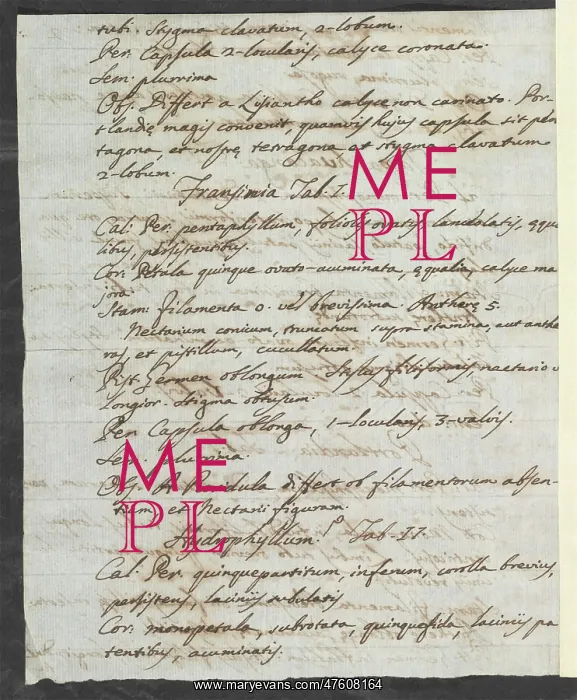 tubi. Stygma clavatum, 2-lobum.
Per. Capsula 2-locularis, calyce coronata.
Sem. plurrima
Obs. Differt a Lisiantho calyce non carinato. Por-
tlandię magis convenit, quamvis hujus capsula sit pen
tagona, et nostrę terragona et stygma clavatum
2-lobum.
Fransimia Tab. I.
ME
PL
Cal. Per. pentaphyllum, foliolis ovatis landolatis, ęqua
libus, persistentibus.
Cor. Petala quinque ovato-acuminata, ęqualia, calyce ma
jora.
Stam. filamenta 0. vel brevissima. Antherę 5.
Nectarium conicum, truncatum supra stamina, aut anthe
ras, et pistillum, cucullatum.
Pist. Germen oblongum. filiformis, nactario
longior. Stigma obtusum.
Per. Capsula oblonga, 1-locularis, 3-valvis.
ME
PL
Sem. plurrima.
Obs. A differt ob filamentorum absen-
tiam, et Nectarii figuram.
Hydrophyllum. Tab. II.
Cal. Per. quinquepartitum, inferum, corolla brevius,
persistens, laciniis subulatis
Cor. monopetala, subrotata, quinquefida, laciniis pa
tentibus, acuminatis.
www.maryevans.com/47608164